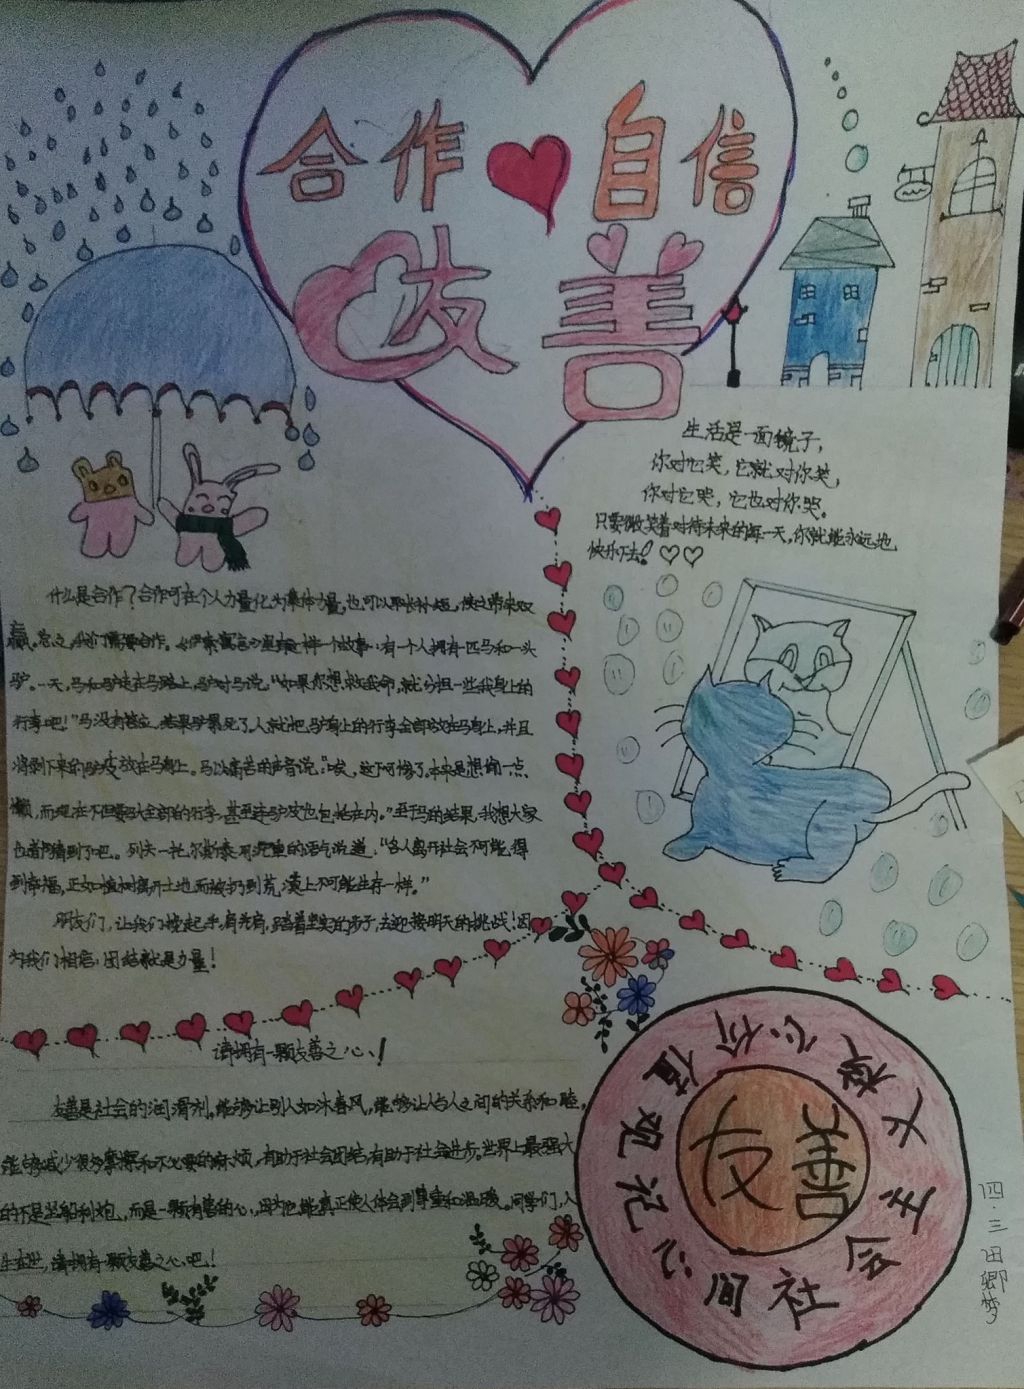 合作 自信
友善
生活是一面镜子，
你对它笑，它就对你笑，
你对它哭，它也对你哭。
只要微笑着对待未来的每一天，你就能永远地
快乐下去！
什么是合作？合作可在个人力量化为集体力量，也可以取长补短，使之带来双
赢。总之，我们需要合作。《伊索寓言》里有这样一个故事：有一个人拥有一匹马和一头
驴。一天，马和驴走在马路上，驴对马说，“如果你想救我命，就分担一些我身上的
行李吧！”马没有答应，结果驴累死了，人就把驴身上的行李全部放在马身上，并且
将剥下来的驴皮放在马身上。马以痛苦的声音说，“唉，这下可惨了，本来是想偷一点
懒，而现在不但要驮全部的行李，甚至连驴皮也包括在内。”至于马的结果，我想大家
也都猜到了吧。列夫－托尔斯泰的话与说道：“各人离开社会不可能得
到幸福，正如植树离开土地而被扔到荒漠上不可能生存一样。”
朋友们，让我们挽起手，肩并肩，踏着坚实的步子，去迎接明天的挑战！因
为我们相信：团结就是力量！
请拥有一颗友善之心！
友善是社会的润滑剂。能够让别人如沐春风，能够让人与人之间的关系和睦，
能够减少很多摩擦和不必要的麻烦，有助于社会团结，有助于社会进步。世界上最强大
的不是坚船利炮，而是一颗友善的心，因为它能真正使人体会到尊重和温暖。同学们，人
生在世，请拥有一颗友善之心吧！
友善
社会主义核心价值观
四·三 田卿梦